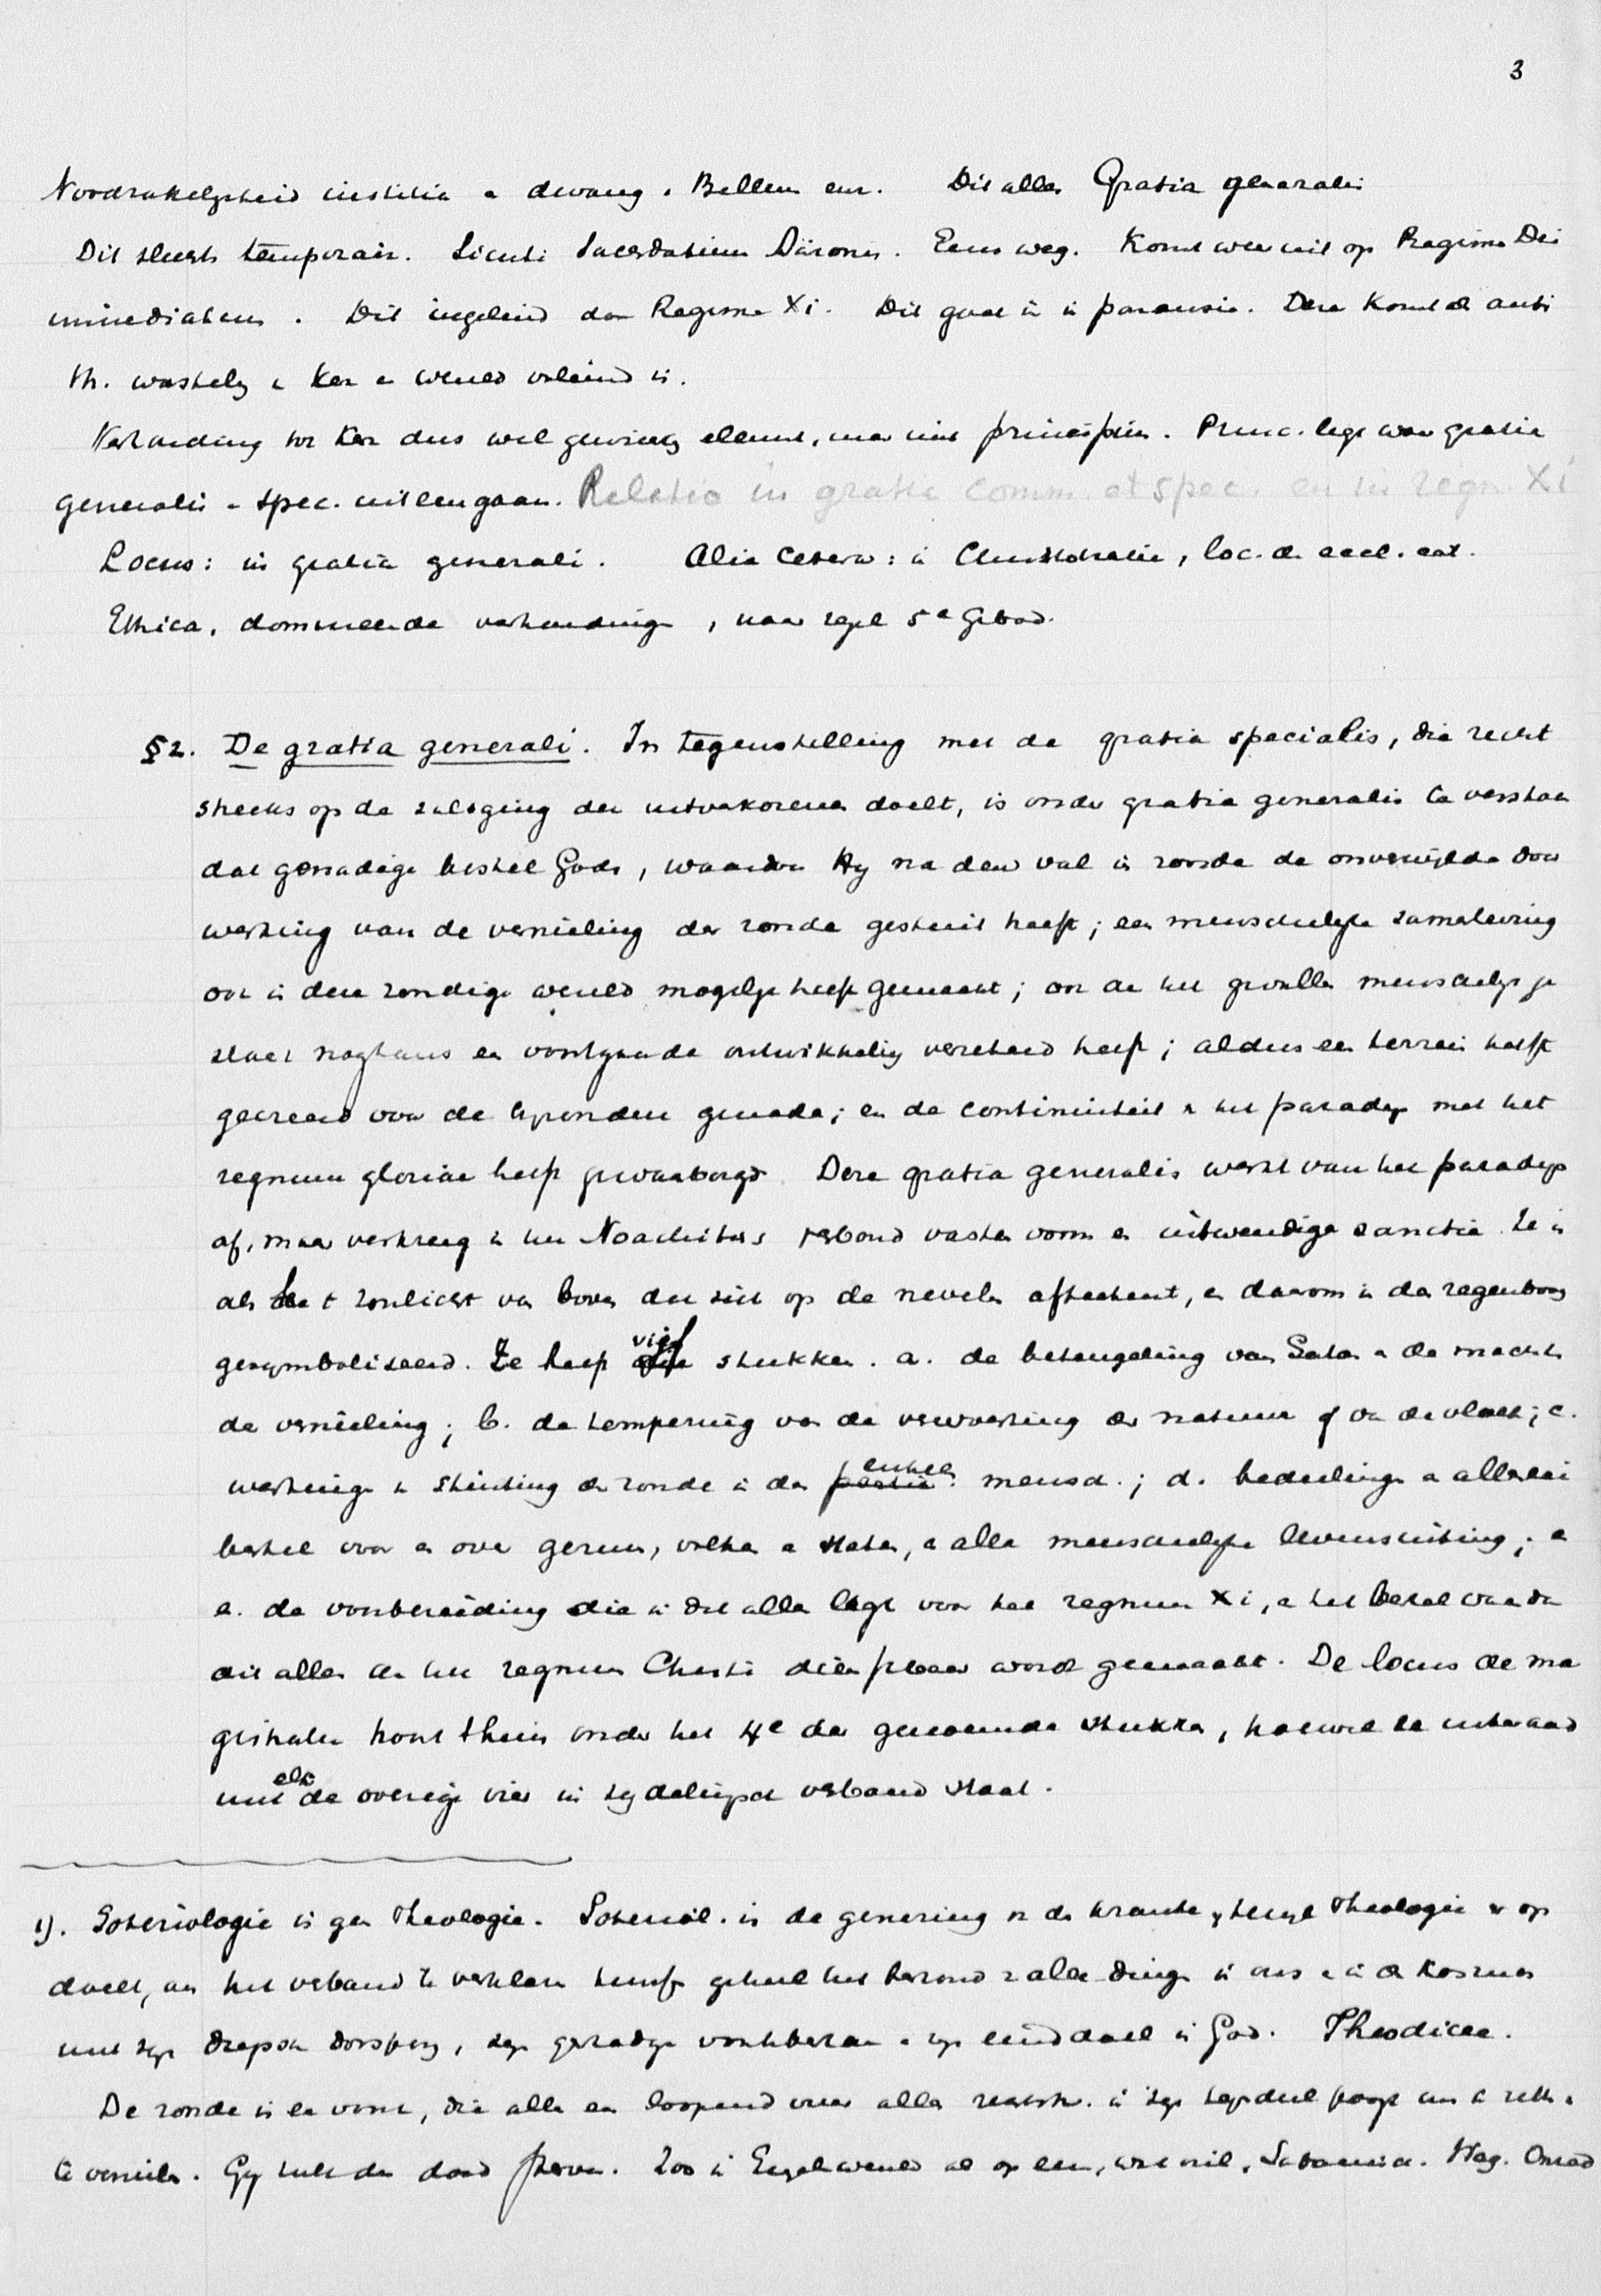 3
Noodzakelijkheid iustitia e dwang. Bellum enz. Dit alles Gratia generalis
Dit slechts temporair. Sicuti Sacerdotium Aäronis. Eens weg. Komt weer uit op Regime Dei
immediatum. Dit ingeleid door Regime Xi. Dit gaat in in parousie. Deze komt als anti
th. wasdely e Ker e wereld voleind is.
Verhouding tot Ker dus wel gewichtig element, maar niet principium. Princ. legt waar gratia
generalis e spec. uiteengaan. Relatio in gratia comm. et spec. en in regn. Xi
Locus: in gratia generali. Alia cetera: in Christologie, loc. de eccl. eat.
Ethica, domineerende verhoudinge, naar regel 5e Gebod.
§2. De gratia generali. In tegenstelling met de gratia specialis, die recht
streeks op de zaliging der uitverkorenen doelt, is onder gratia generalis te verstaan
dat genadige bestel Gods, waardoor Hy na den val in zonde de onverwijlde door
werking van de vernieling der zonde gestuit heeft; een menschelyke samenleving
ook in deze zondige wereld mogelyk heeft gemaakt; om aan het gevallen menschelyk ge
slacht nogthans een voortgaande ontwikkeling verzekerd heeft; aldus een terrein heeft
gecreeerd voor de byzondere genade; en de continuiteit v het paradys met het
regnum gloriae heeft gewaarborgd. Deze gratia generalis werkt van het paradys
af, maar verkreeg in het Noachitisch verbond vaster vorm en uitwendige sanctie. Ze is
als het zonlicht van boven dat zich op de nevelen afteekent, en daarom in den regenboog
gesymboliseerd. Ze heeft vijf stukken. a. de beteugeling van Satan e de macht
de vernieling; b. de tempering van de verwoesting der natuur of van de vloek; c.
werkinge te stuiting der zonde in den enkelen mensch.; d. bedeelinge e allerlei
bestel voor en over gezin, volken e staten, e alle menschelyke levensuiting; e
e. de voorbereiding die in dit alles legt voor het regnum Xi, e het bestel waardoor
dit alles aan het regnum Christi dienstbaar wordt gemaakt. De locus de ma
gistratu hoort thuis onder het 4e der genoemde stukken, hoewel ze uiteraard
met elk de overige vier in zydelingsch verband staat.
1). Soteriologie is geen Theologie. Soteriol. is de genezing v de kranke, terwyl Theologie er op
doelt, om het verband te verklaren tusschen geheel het bestand v alle dinge in ons e in de Kosmos
met zyn diepsten oorsprong, zyn gestadig voortbestaan e zyn einddoel in God. Theodicee.
De zonde is een vonk, die alle en loopend vuur alles in zyn tegendeel poogt om te zetten e
te vernielen. Gy zult den dood sterven. Zoo in Engelwereld al op een, wie viel, Satanisch. Mag. Onraad